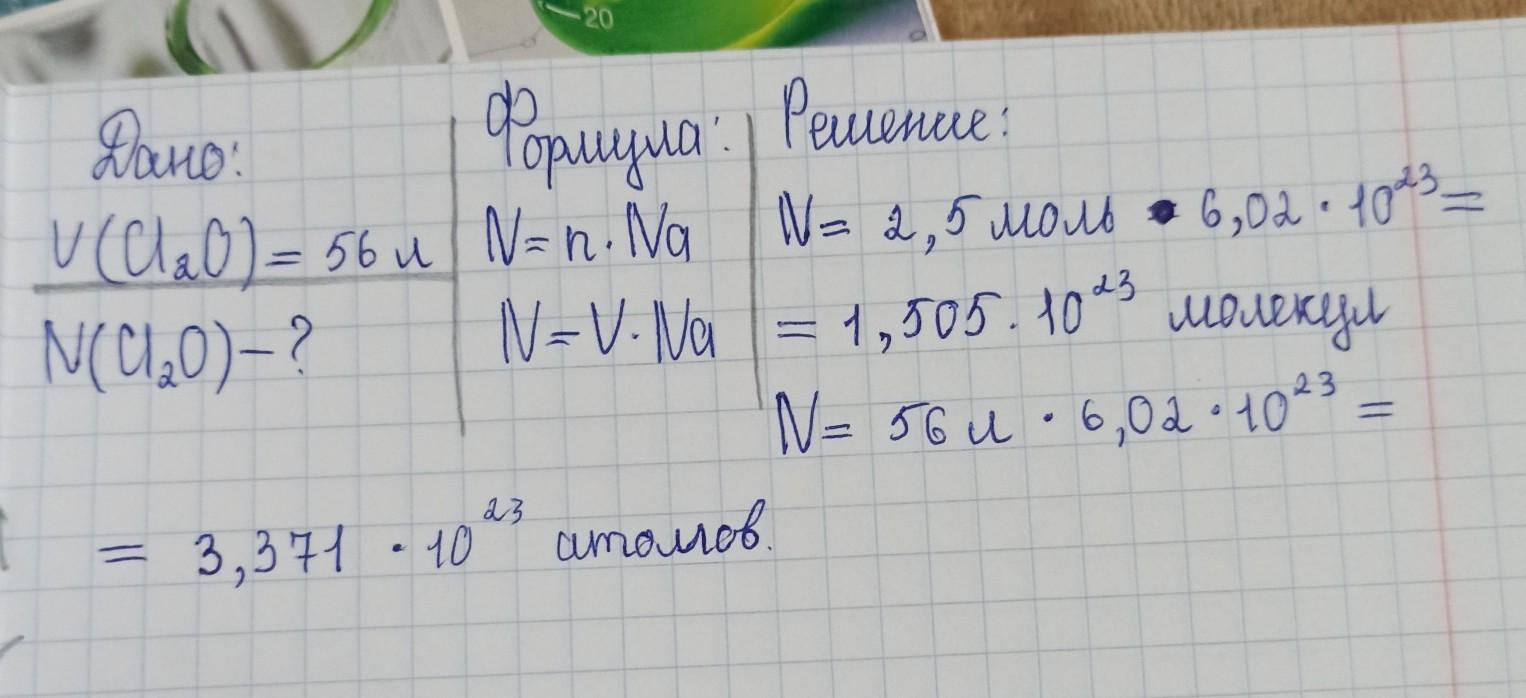 20
Дано:
V(Cl₂O) = 56 л
N(Cl₂O) – ?
Формула:
N = n · Na
N = V · Na
Решение:
N = 2,5 моль · 6,02 · 10²³ =
= 1,505 · 10²³ молекул
N = 56 л · 6,02 · 10²³ =
= 3,371 · 10²³ атомов.